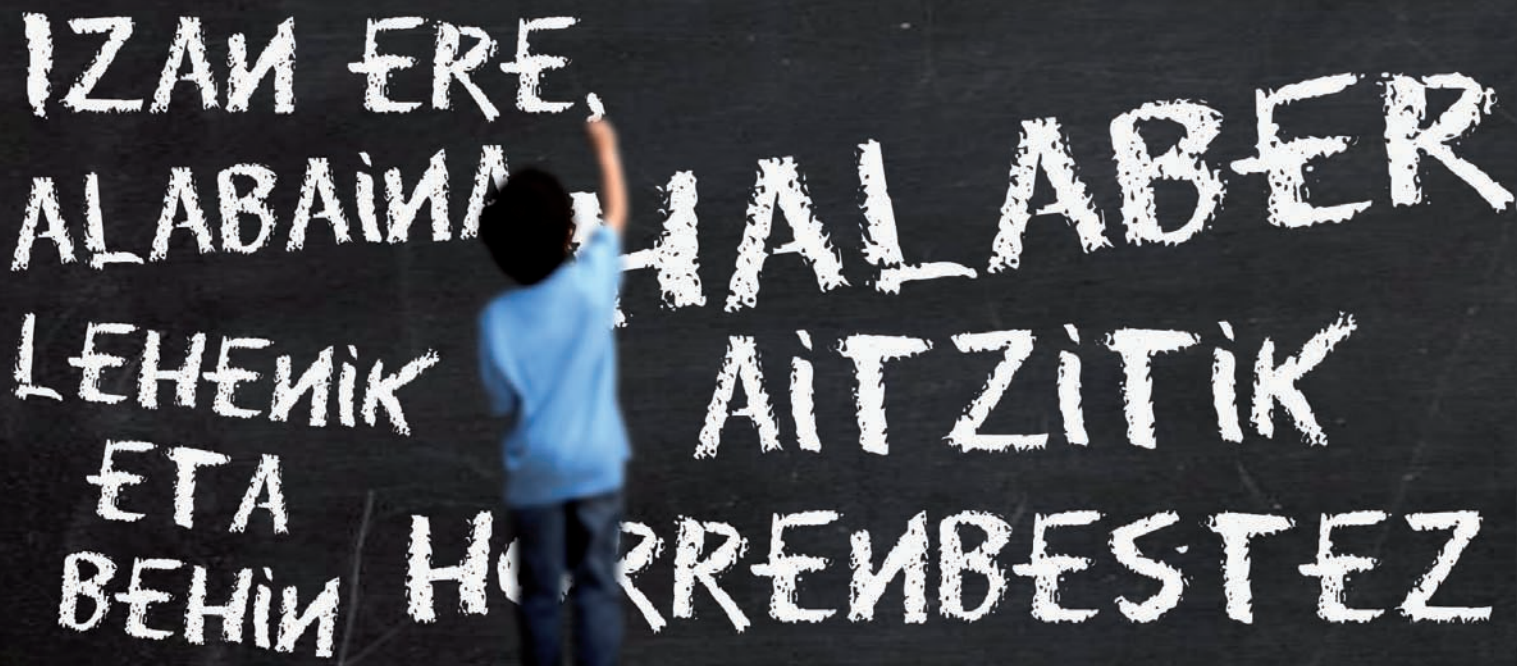 IZAN ERE,
ALABAINA
LEHENIK
ETA
BEHIN
HALABER
AITZITIK
HORRENBESTEZ